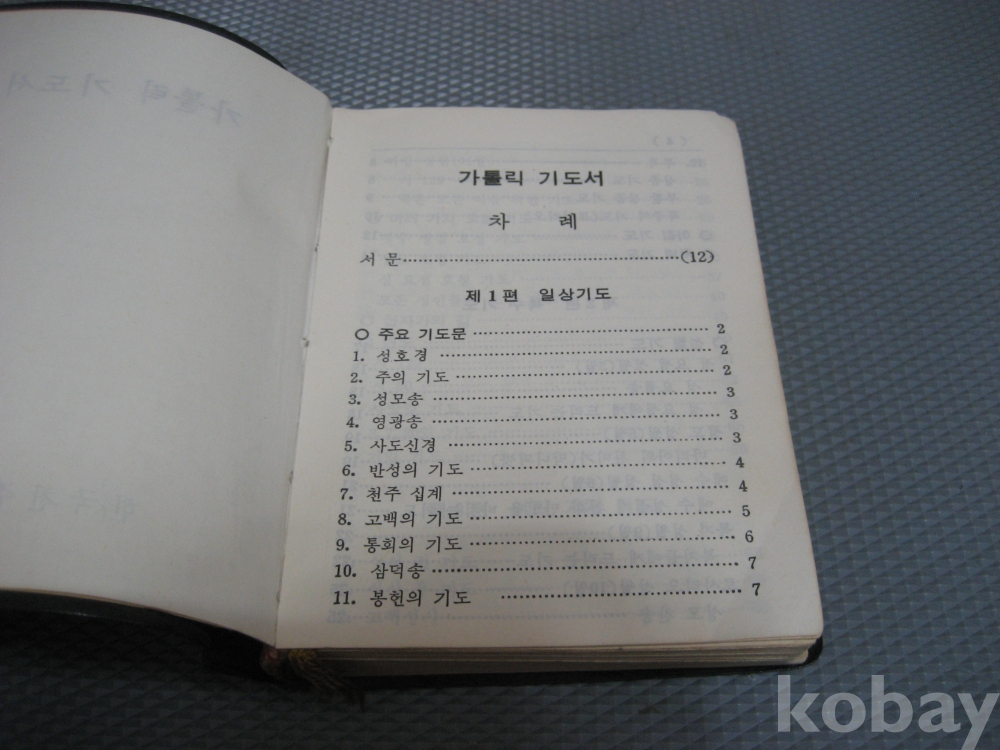 가톨릭 기도서
차 례
서 문……………………………………(12)
제 1 편 일상기도
○ 주요 기도문 ……………………………… 2
1. 성호경 ……………………………………… 2
2. 주의 기도 ………………………………… 2
3. 성모송 ……………………………………… 3
4. 영광송 ……………………………………… 3
5. 사도신경 …………………………………… 3
6. 반성의 기도 ……………………………… 4
7. 천주 십계 ………………………………… 4
8. 고백의 기도 ……………………………… 5
9. 통회의 기도 ……………………………… 6
10. 삼덕송 …………………………………… 7
11. 봉헌의 기도 …………………………… 7
kobay